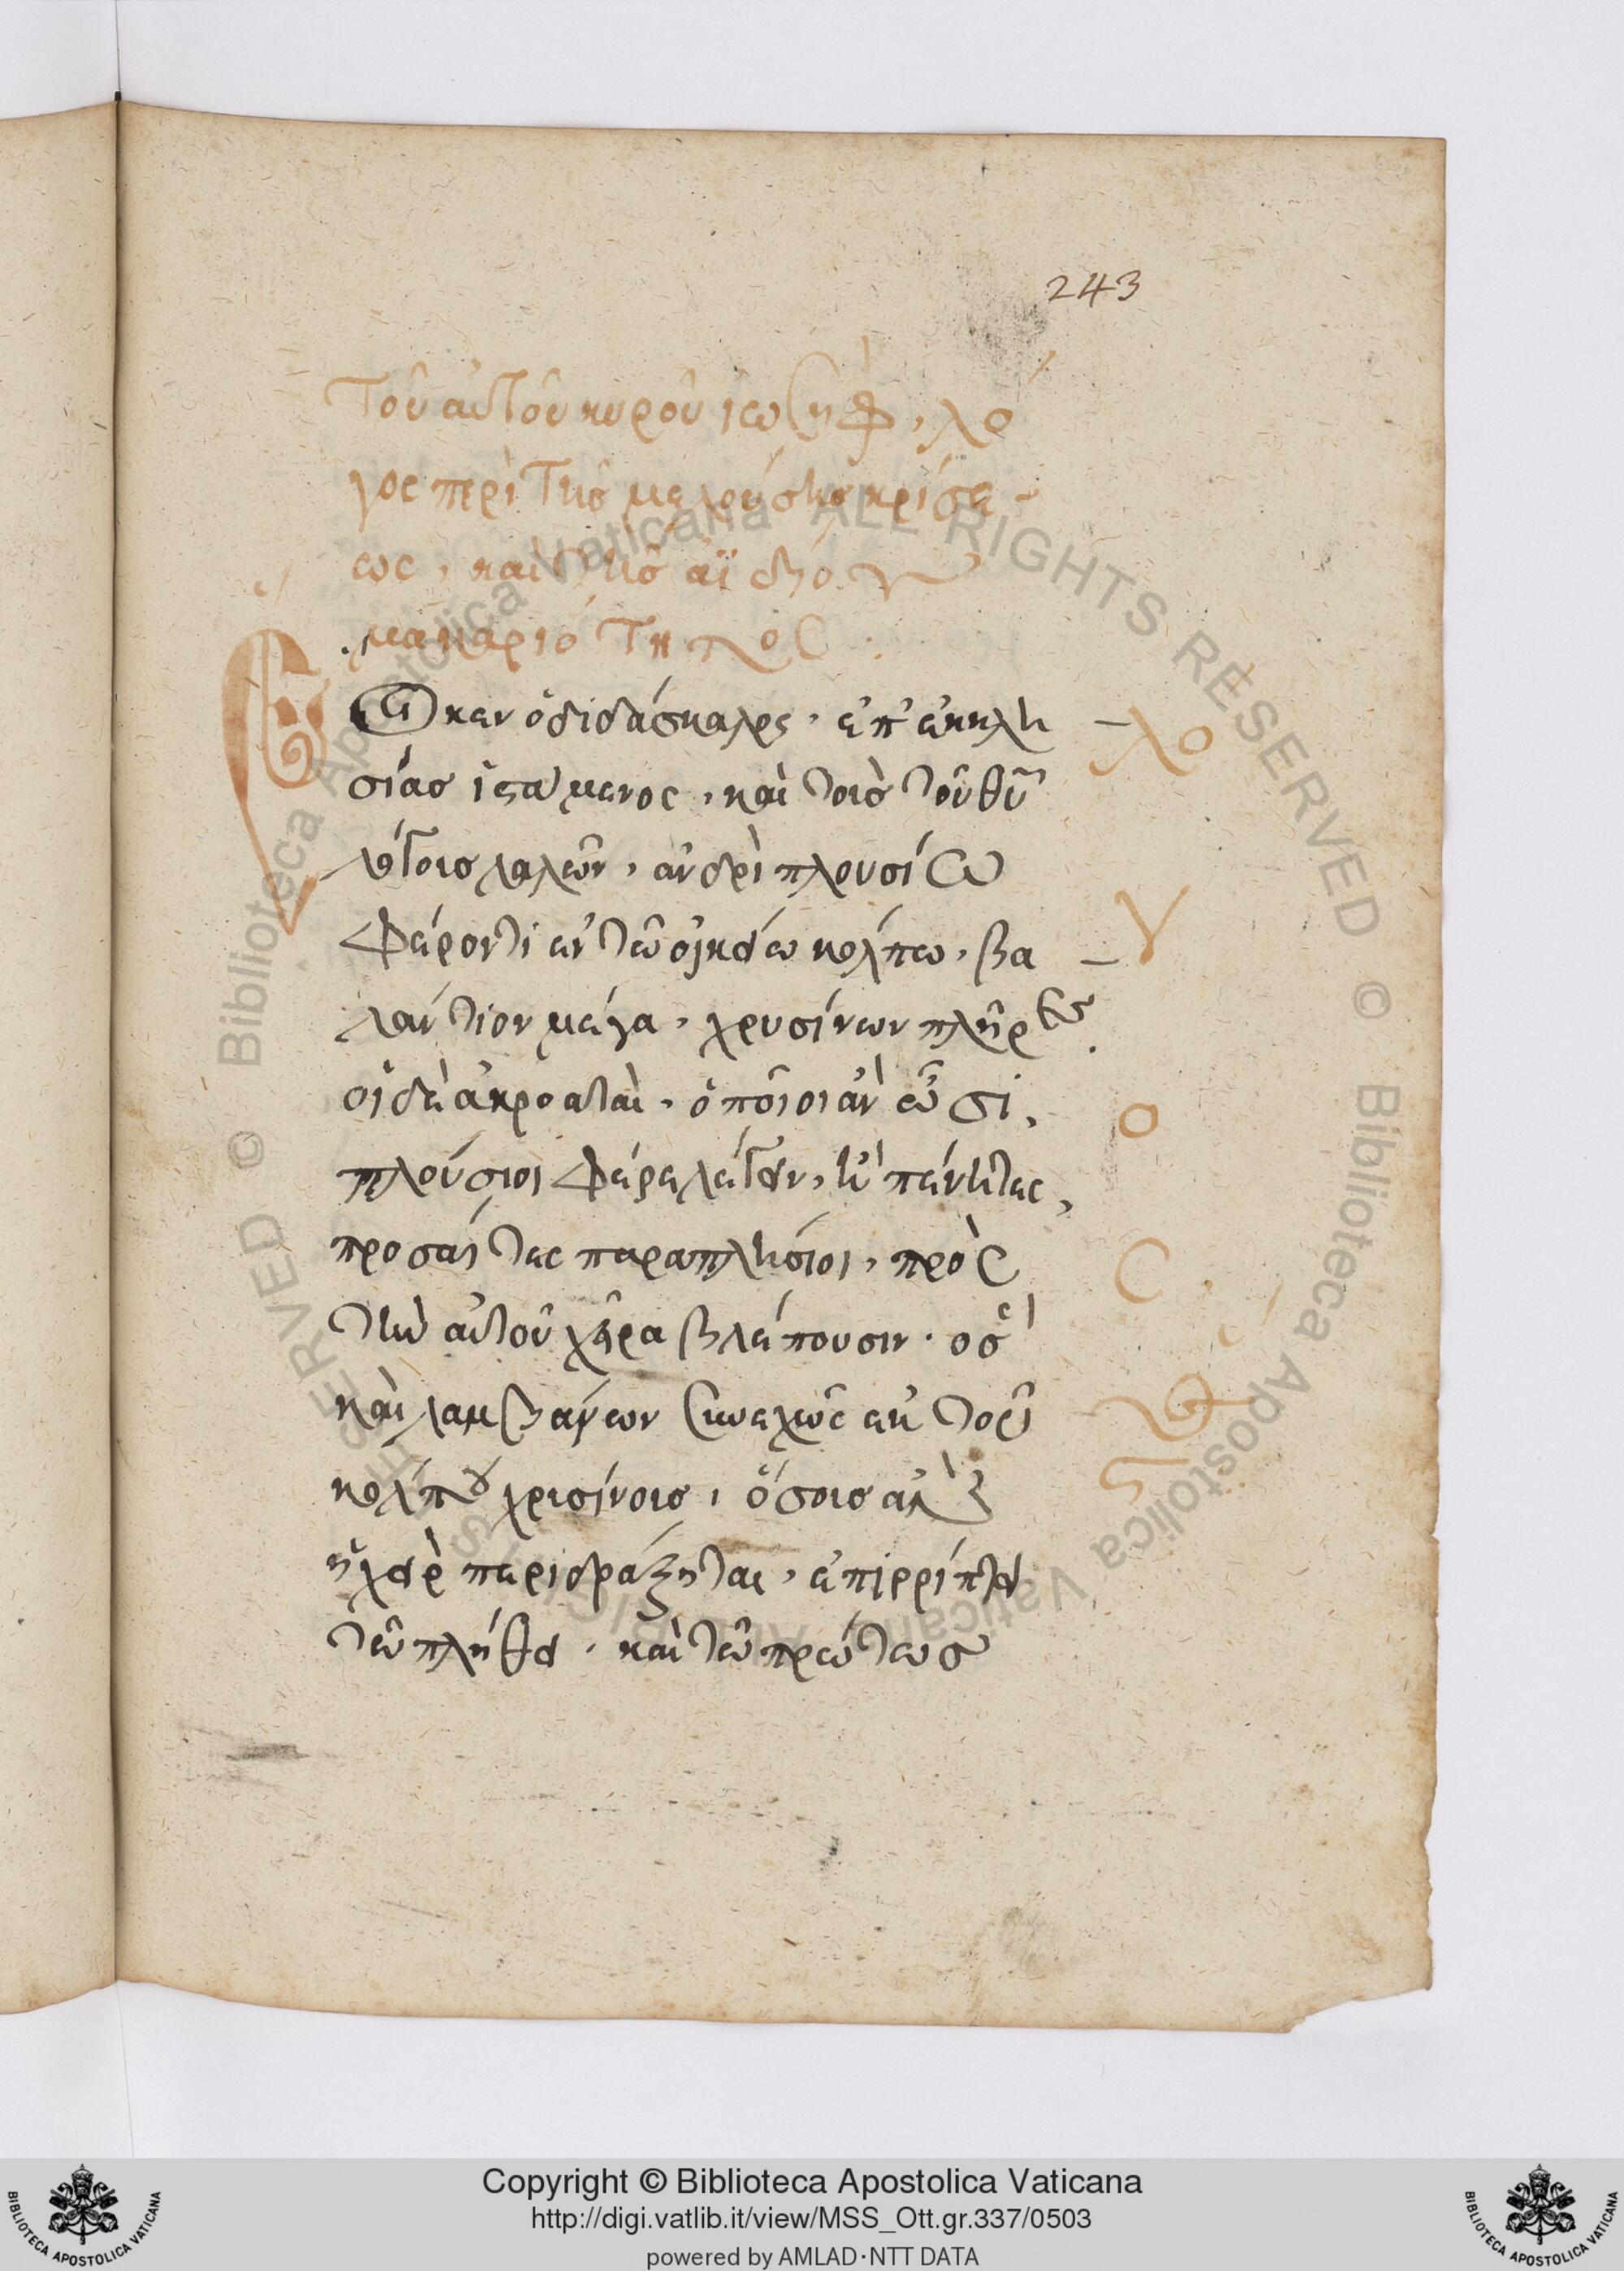 243
Τοῦ αὐτοῦ κυροῦ ἰωσὴφ, λό
γος περὶ τῆς μελούσης κρίσε
ως, καὶ τῆς ἀϊδίου
μακαριότητος :
Ἔοικεν ὁ διδάσκαλος, ἐπ' ἐκκλη
σίας ἱστάμενος, καὶ τοῖς τοῦ θῦ
λόγοις λαλῶν, ἀνδρὶ πλουσίω
φέροντι ἐν τῶ οἰκείω κόλπω, βα
λάντιον μέγα, χρυσίνων πλῆρες.
οἱ δὲ ἀκροαταὶ, ὁποῖοι ἂν ὦσι,
πλούσιοι φέρε λέγειν, ἢ πένητες,
προσαίτες παραπλησίοι, πρὸς
τὴν αὐτοῦ χεῖρα βλέπουσιν. ὃς
καὶ λαμβάνων συνεχῶς ἐκ τοῦ
κόλπου χρισίνοις, ὅσοις ἂν
ἡ χεὶρ περιδράξηται, ἐπιρρίπτει
τῶ πλήθει, καὶ τῶ πρώτως
λο
γ
ο
ς
Copyright © Biblioteca Apostolica Vaticana
http://digi.vatlib.it/view/MSS_Ott.gr.337/0503
powered by AMLAD·NTT DATA
BIBLIOTECA APOSTOLICA VATICANA
BIBLIOTECA APOSTOLICA VATICANA
© Biblioteca Apostolica Vaticana ALL RIGHTS RESERVED © Biblioteca Apostolica Vaticana ALL RIGHTS RESERVED